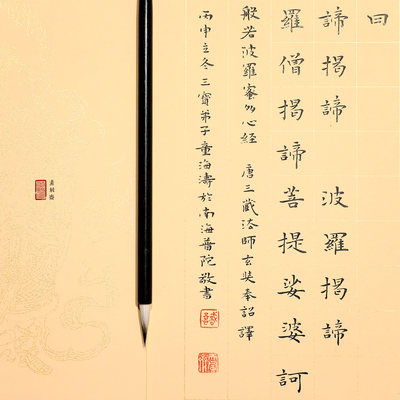 曰
諦揭諦 波羅揭諦
羅僧揭諦菩提娑婆訶
般若波羅蜜多心經 唐三藏法師玄奘奉詔譯
丙申立冬三寶弟子童海濤於南海普陀敬書